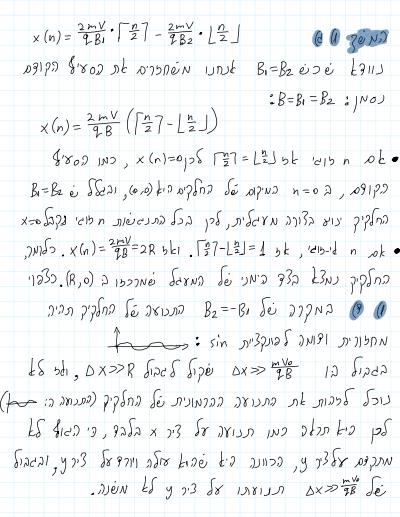 המשך 1 ב x(n) = 2mV/qB₁ · ⌈n/2⌉ − 2mV/qB₂ · ⌊n/2⌋
נוודא שכש B₁=B₂ אנחנו משחזרים את הסעיף הקודם
נסמן: B=B₁=B₂:
x(n) = 2mV/qB (⌈n/2⌉ − ⌊n/2⌋)
• אם n זוגי אז ⌈n/2⌉=⌊n/2⌋ לכן x(n)=0, כמו הסעיף
הקודם, ב n=0 המיקום של החלקיק היא (0,0), ובגלל ש B₁=B₂
החלקיק נוע בצורה מעגלית, לכן בכל התנגשות n זוגי נקבל x=0
• אם n אי-זוגי, אז ⌈n/2⌉−⌊n/2⌋=1. ואז x(n)=2mV/qB=2R. כלומר,
החלקיק נמצא בצד הימני של המעגל שמרכזו ב (R,0). כצפוי
1 במקרה של B₂=−B₁ התנועה של החלקיק תהיה
מחזורית ודומה לפונקציית sin:
בגבול בו Δx≫mV₀/qB שקול לגבול Δx≫R, ואז לא
נוכל לזהות את התנועה ההרמונית של החלקיק (התנועה הזו: )
לכן היא תראה כמו תנועה על ציר x בלבד, כי הגוף לא
מתקדם על ציר y, הכוונה היא שהוא עולה ויורד על ציר y, ובגבול
של Δx≫mV₀/qB תנועתו על ציר y לא משנה.